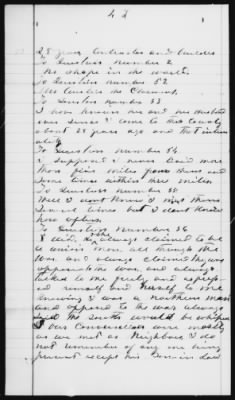 28 years Contractor and builder
To Question Number 2
No Shape in the world
To Question Number 52
The Claimant
To Question Number 53
I have known him and her Husband
ever since I come to this County
about 28 years ago and
To Question Number 54
I suppose I never lived more
than five miles from them and
some times within three miles
To Question Number 55
Well I dont know I met them
several times but I dont know
how often
To Question Number 56
I said he always claimed to be
a union man all through the
war and always claimed he was
opposed to the war, and always
talked to me freely and expressed
himself and herself to me
knowing I was a Northern man
and opposed to the war always
said the South would be whipped
Our Conversations were mostly
as we met as Neighbors I do
not remember of any one being
present except his